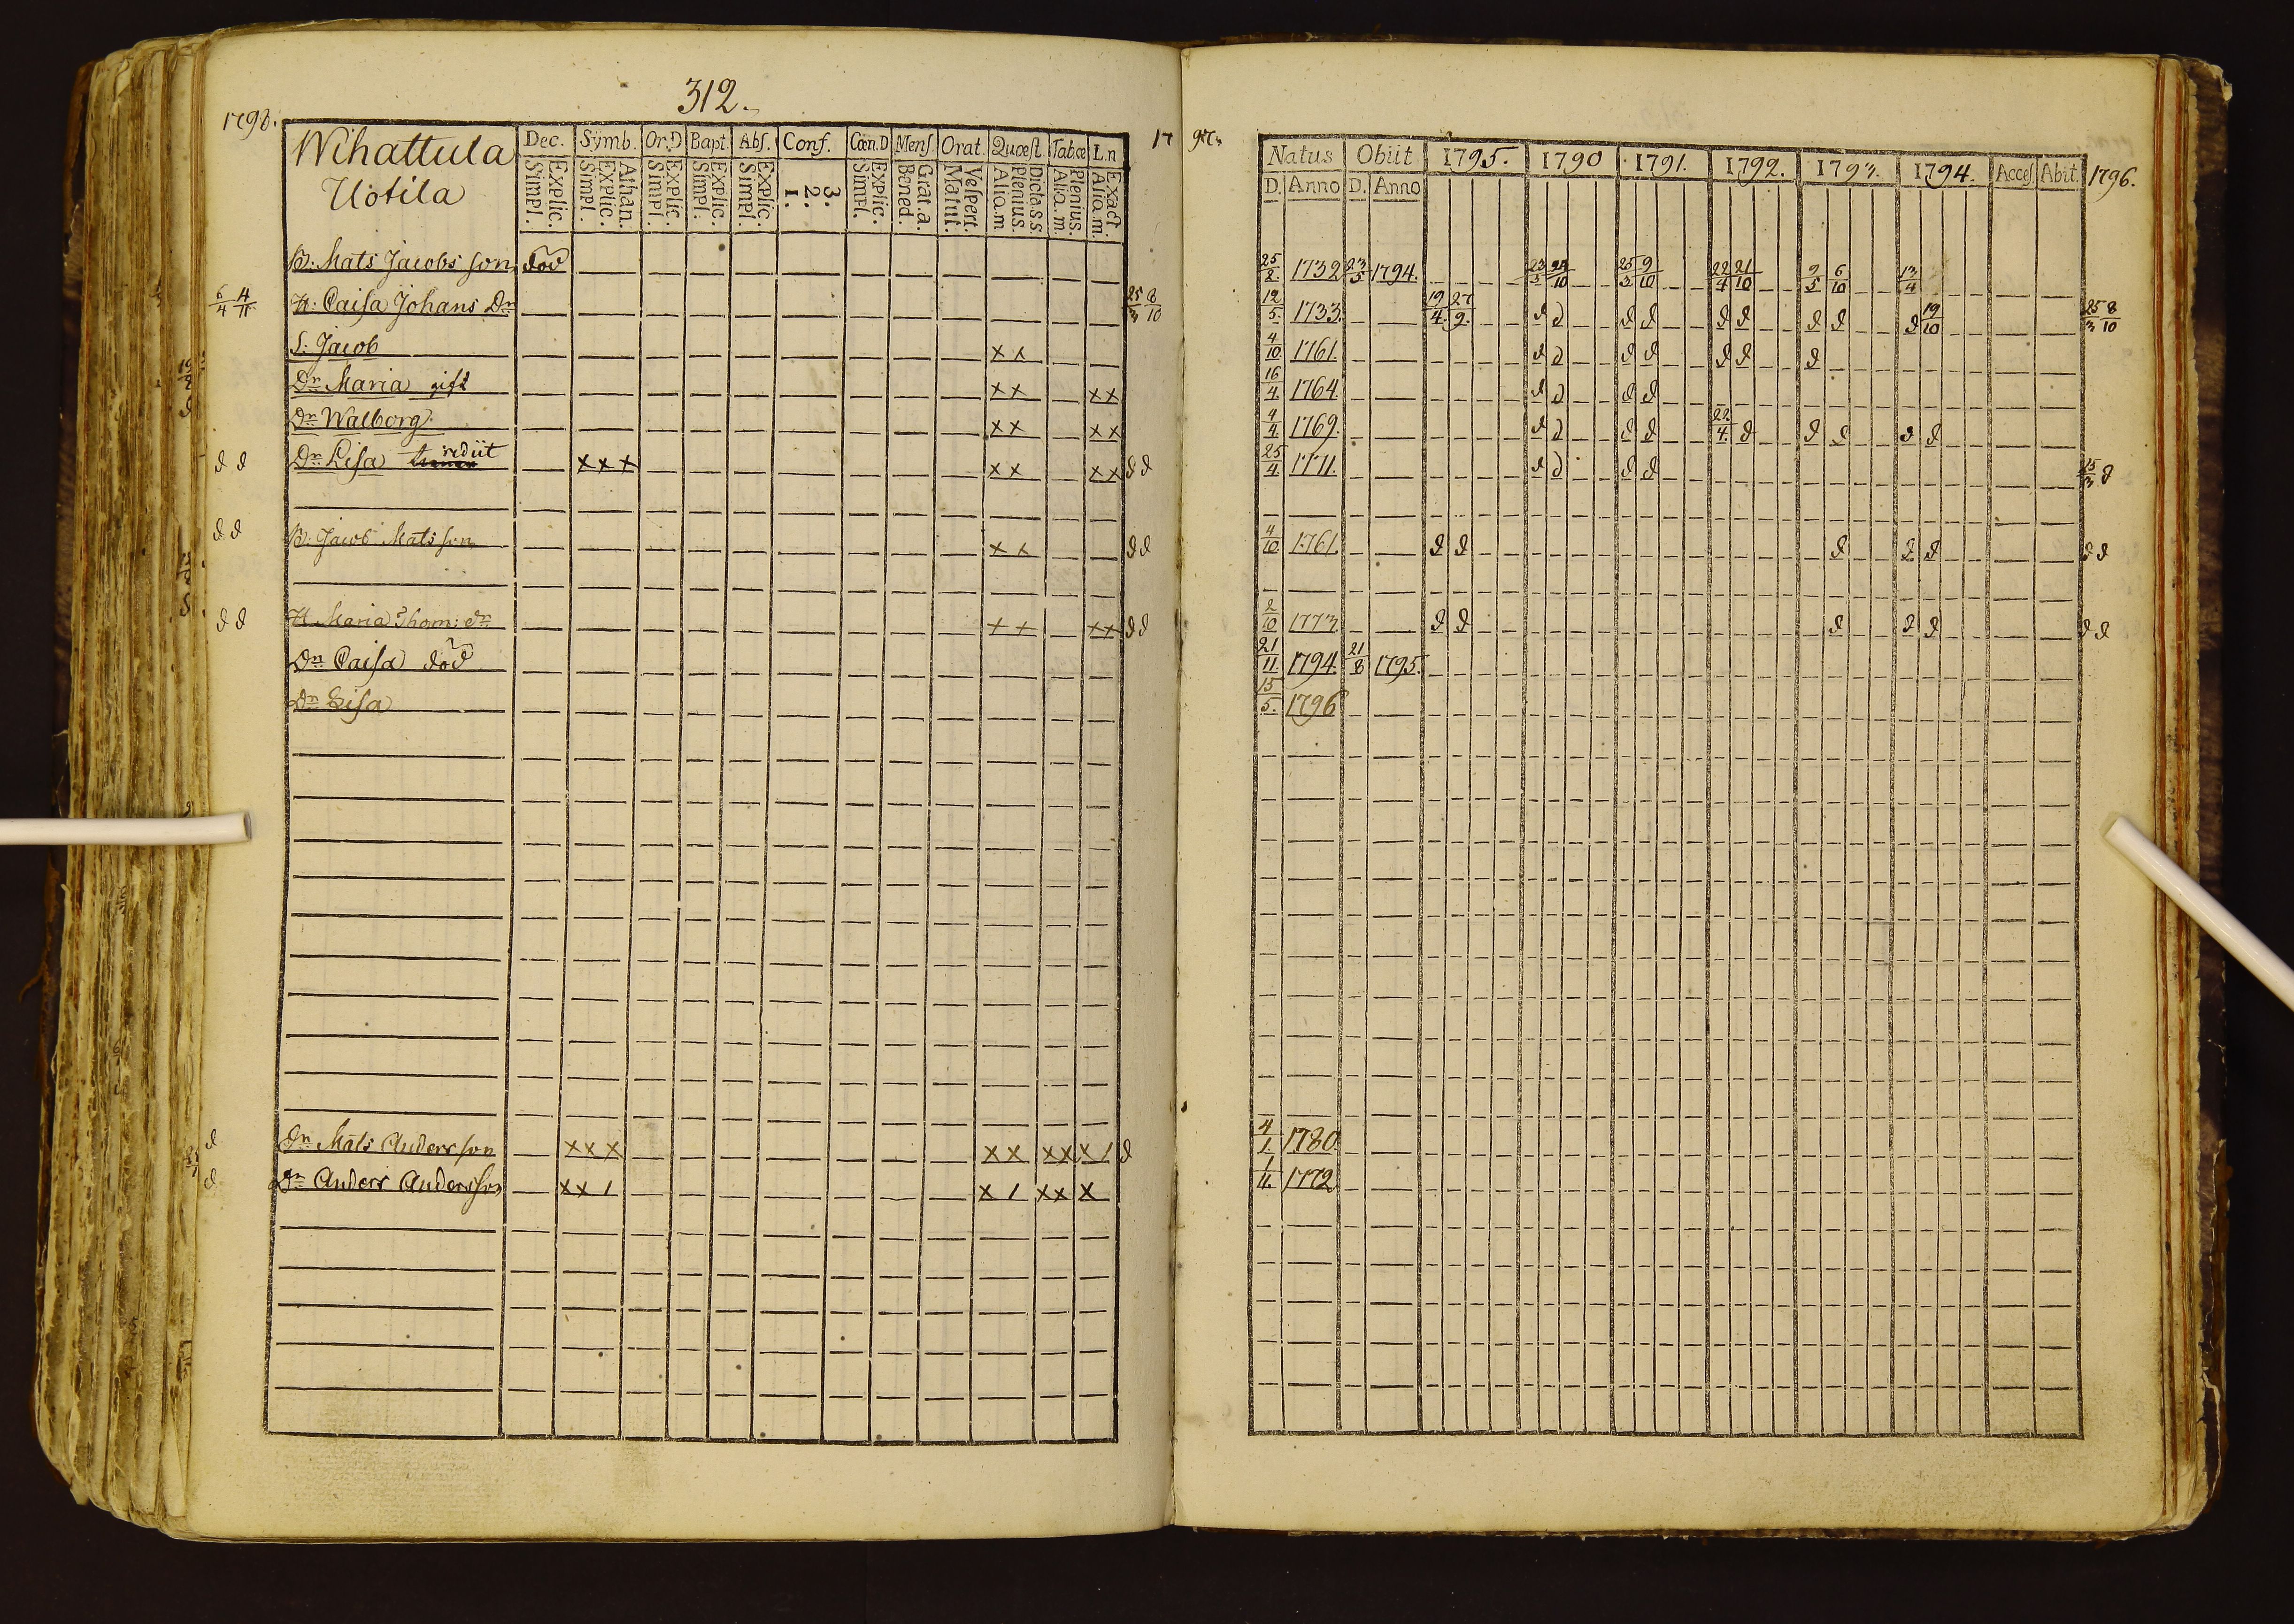 312.
1798.
Wihattula
Uotila
Dec. Symb. Or.D Bapt. Abs. Conf. Cœn.D Mens. Orat. Quæst. Tab.œ L.n
Explic. Simpl. Athan. Explic. Simpl. Explic. Simpl. Explic. Simpl. Explic. Simpl. 3. 2. 1. Explic. Simpl. Grat.a. Bened. Vespert. Matut. Dicta S S Plenius. Alia.m Plenius. Alia.m Exact. Alia.m.
17 97.
Natus Obiit 1795. 1790 1791. 1792. 1793. 1794. Acces Abit. 1796.
D. Anno D. Anno
B: Mats Jacobs son död 25/2. 1732 23/5 1794. 25/3 9/10 22/4 21/10 9/5 6/10 13/4
6/4 4/11 H: Caisa Johans Dr 25/3 8/10 12/5. 1733. 19/4. 27/9. d d d d d d d d d 19/10 25/3 8/10
S: Jacob x x 4/10 1761. d d d d d d d
Dr Maria gift x x x x 16/4. 1764. d d d d
Dr Walborg x x x x 4/4. 1769. d d d d 22/4. d d d d d
d d Dr Lisa rediit x x x x x x x d d 25/4 1771. d d d d 15/3 d
d d B: Jacob Mats son x x d d 4/10 1761. d d d d d d d
d d H Maria Thom: dr x x x x d d 2/10 1773. d d d d d d d
Dr Caisa död 21/11. 1794. 21/8 1795.
Dr Lisa 15/5. 1796
d Dn Mats Andersson x x x x x x x x / d 4/1. 1780.
d Dn Anders Andersson x x / x / x x x 1/11. 1772